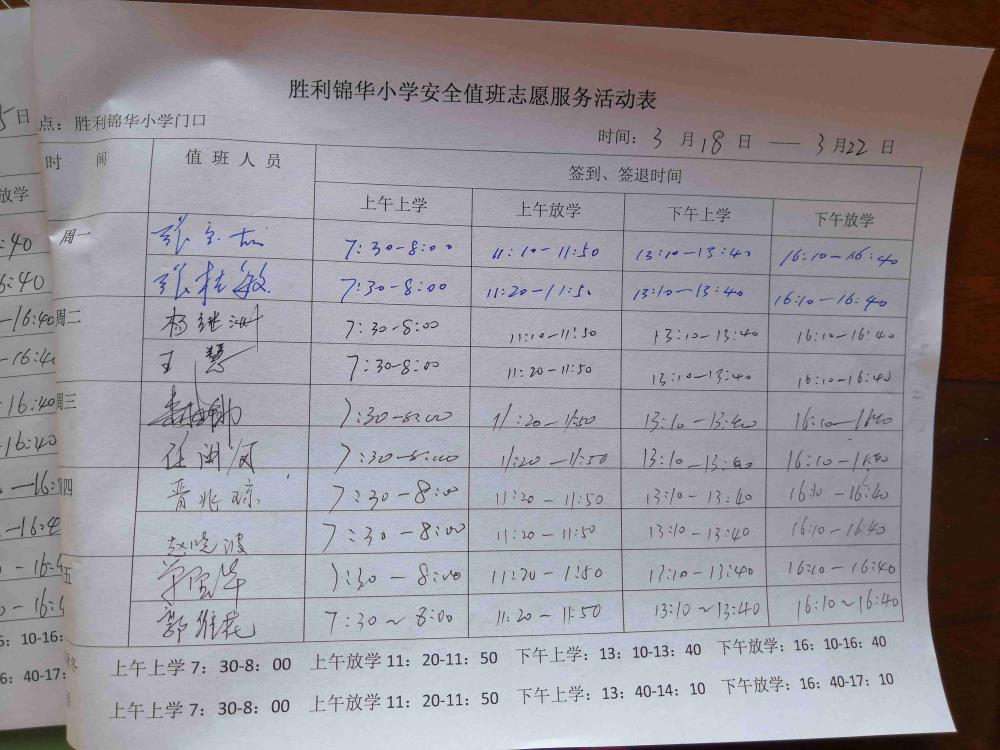 胜利锦华小学安全值班志愿服务活动表
点：胜利锦华小学门口
时间：3月18日 —— 3月22日
时 间 值班人员 签到、签退时间
上午上学 上午放学 下午上学 下午放学
周一 7:30-8:00 11:10-11:50 13:10-13:40 16:10-16:40
张桂敏 7:30-8:00 11:20-11:50 13:10-13:40 16:10-16:40
周二 杨继洲 7:30-8:00 11:10-11:50 13:10-13:40 16:10-16:40
王慧 7:30-8:00 11:20-11:50 13:10-13:40 16:10-16:40
周三 7:30-8:00 11:20-11:50 13:10-13:40 16:10-16:40
任闽河 7:30-8:00 11:20-11:50 13:10-13:40 16:10-16:40
四 晋兆琼 7:30-8:00 11:20-11:50 13:10-13:40 16:10-16:40
赵晓波 7:30-8:00 11:20-11:50 13:10-13:40 16:10-16:40
五 7:30-8:00 11:20-1:50 13:10-13:40 16:10-16:40
郭维花 7:30~8:00 11:20-11:50 13:10~13:40 16:10~16:40
上午上学 7：30-8：00 上午放学 11：20-11：50 下午上学：13：10-13：40 下午放学：16：10-16：40
上午上学 7：30-8：00 上午放学 11：20-11：50 下午上学：13：40-14：10 下午放学：16：40-17：10